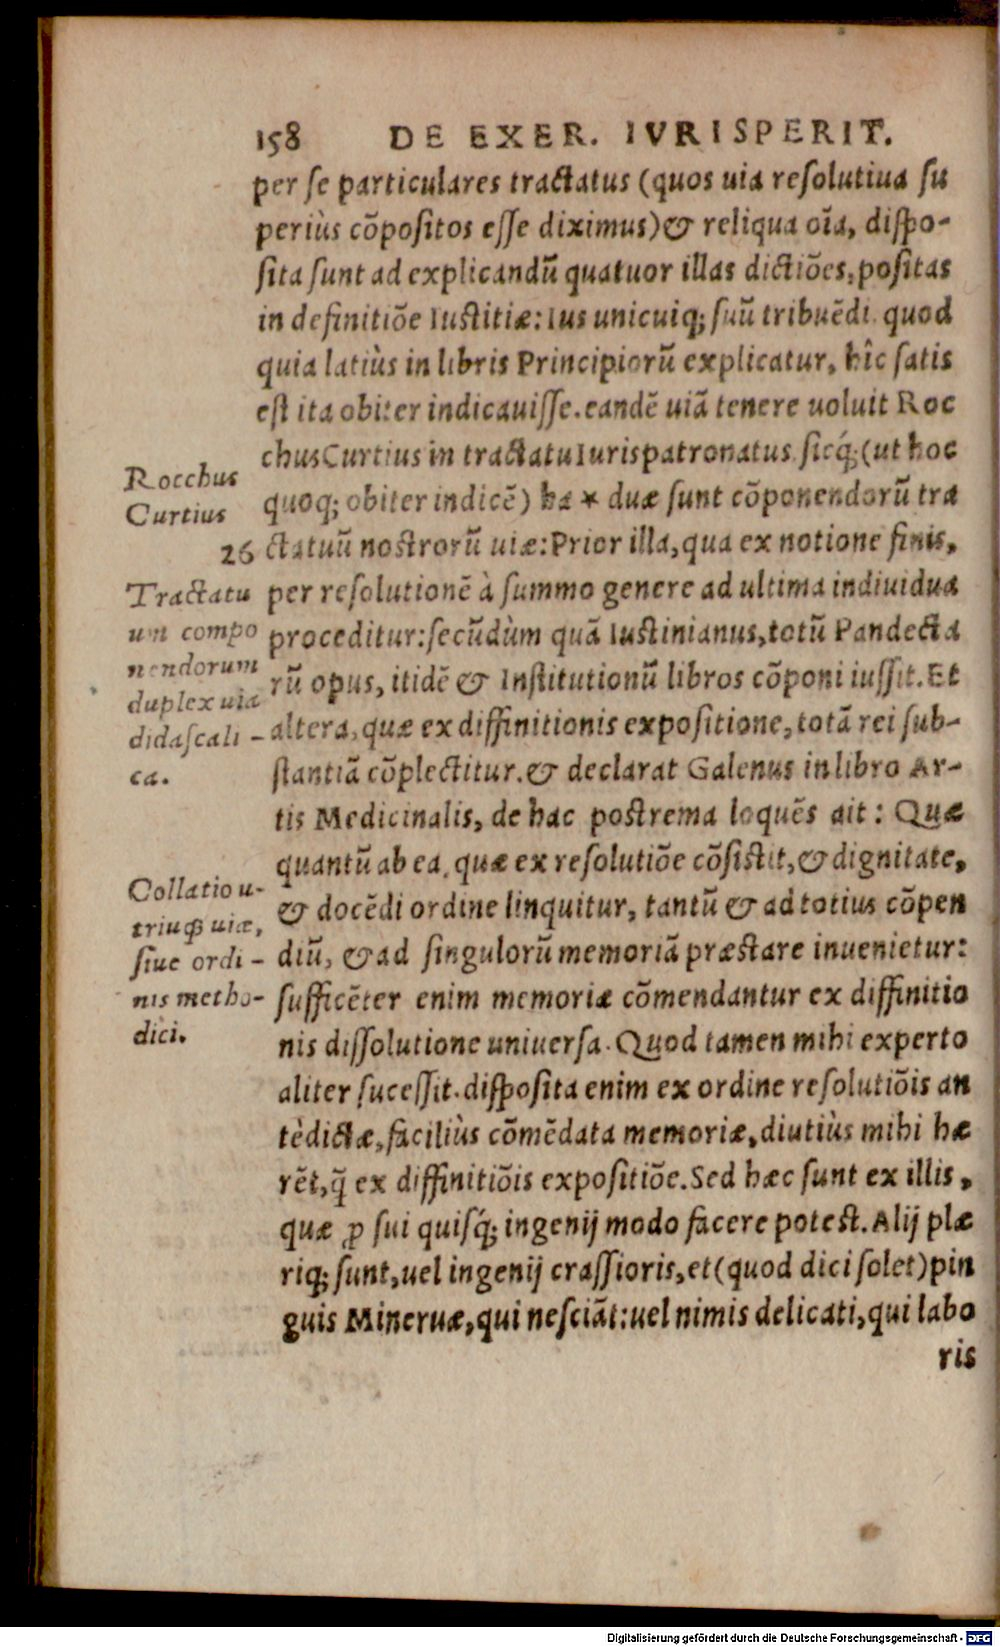 158 DE EXER. IVRISPERIT.
per se particulares tractatus (quos uia resolutiua su
periùs cõpositos esse diximus)& reliqua oĩa, dispo-
sita sunt ad explicandũ quatuor illas dictiões, positas
in definitiõe Iustitiæ: Ius unicuiq; suũ tribuẽdi. quod
quia latiùs in libris Principiorũ explicatur, hîc satis
est ita obiter indicauisse. eandẽ uiã tenere uoluit Roc
chus Curtius in tractatu Iurispatronatus. sicq́; (ut hoc
quoq; obiter indicẽ) hæ * duæ sunt cõponendorũ tra
26 ctatuũ nostrorũ uiæ: Prior illa, qua ex notione finis,
per resolutionẽ à summo genere ad ultima indiuidua
proceditur: secũdùm quã Iustinianus, totũ Pandecta
rũ opus, itidẽ & Institutionũ libros cõponi iussit. Et
altera, quæ ex diffinitionis expositione, totã rei sub-
stantiã cõplectitur. & declarat Galenus in libro Ar-
tis Medicinalis, de hac postrema loquẽs ait: Quæ
quantũ ab ea, quæ ex resolutiõe cõsistit, & dignitate,
& docẽdi ordine linquitur, tantũ & ad totius cõpen
diũ, & ad singulorũ memoriã præstare inuenietur:
sufficẽter enim memoriæ cõmendantur ex diffinitio
nis dissolutione uniuersa. Quod tamen mihi experto
aliter sucessit. disposita enim ex ordine resolutiõis an
tèdictæ, faciliùs cõmẽdata memoriæ, diutiùs mihi hæ
rẽt, q̃ ex diffinitiõis expositiõe. Sed hæc sunt ex illis,
quæ ꝓ sui quisq́; ingenij modo facere potest. Alij plæ
riq; sunt, uel ingenij crassioris, et (quod dici solet) pin
guis Mineruæ, qui nesciãt: uel nimis delicati, qui labo
ris
Rocchus
Curtius
Tractatu
um compo
nendorum
duplex uia
didascali-
ca.
Collatio u-
triuqȝ uiæ,
siue ordi-
nis metho-
dici.
Digitalisierung gefördert durch die Deutsche Forschungsgemeinschaft - DFG